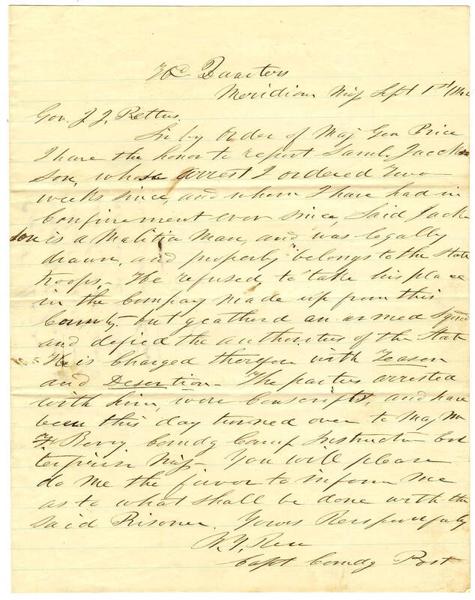 Hd Quarters
Meridian Miss Sept 1st
Gov. J. J. Pettus.
Sir by Order of Maj Gen Price
I have the honor to report Saml. Jack
son, whose arrest I ordered two
weeks since, and whom I have had in
confinement ever since, Said Jack
son is a Malitia Man, and was legally
drawn, and properly belongs to the State
troops. He refused to take his place
in the Compay made up from this
County, but geatherd an armed Squad
and defied the authorities of the State
He is charged therefor with Treason
and Desertion - The parties arrested
with him, were Conscripts, and have
been this day turned over to Maj Wm
H. Berry Comdg Camp Instruction Ent
terprise Miss. You will please
do me the favor to inform me
as to what shall be done with the
said Prisoner. Yours Respectfuly
Capt Comdg Post